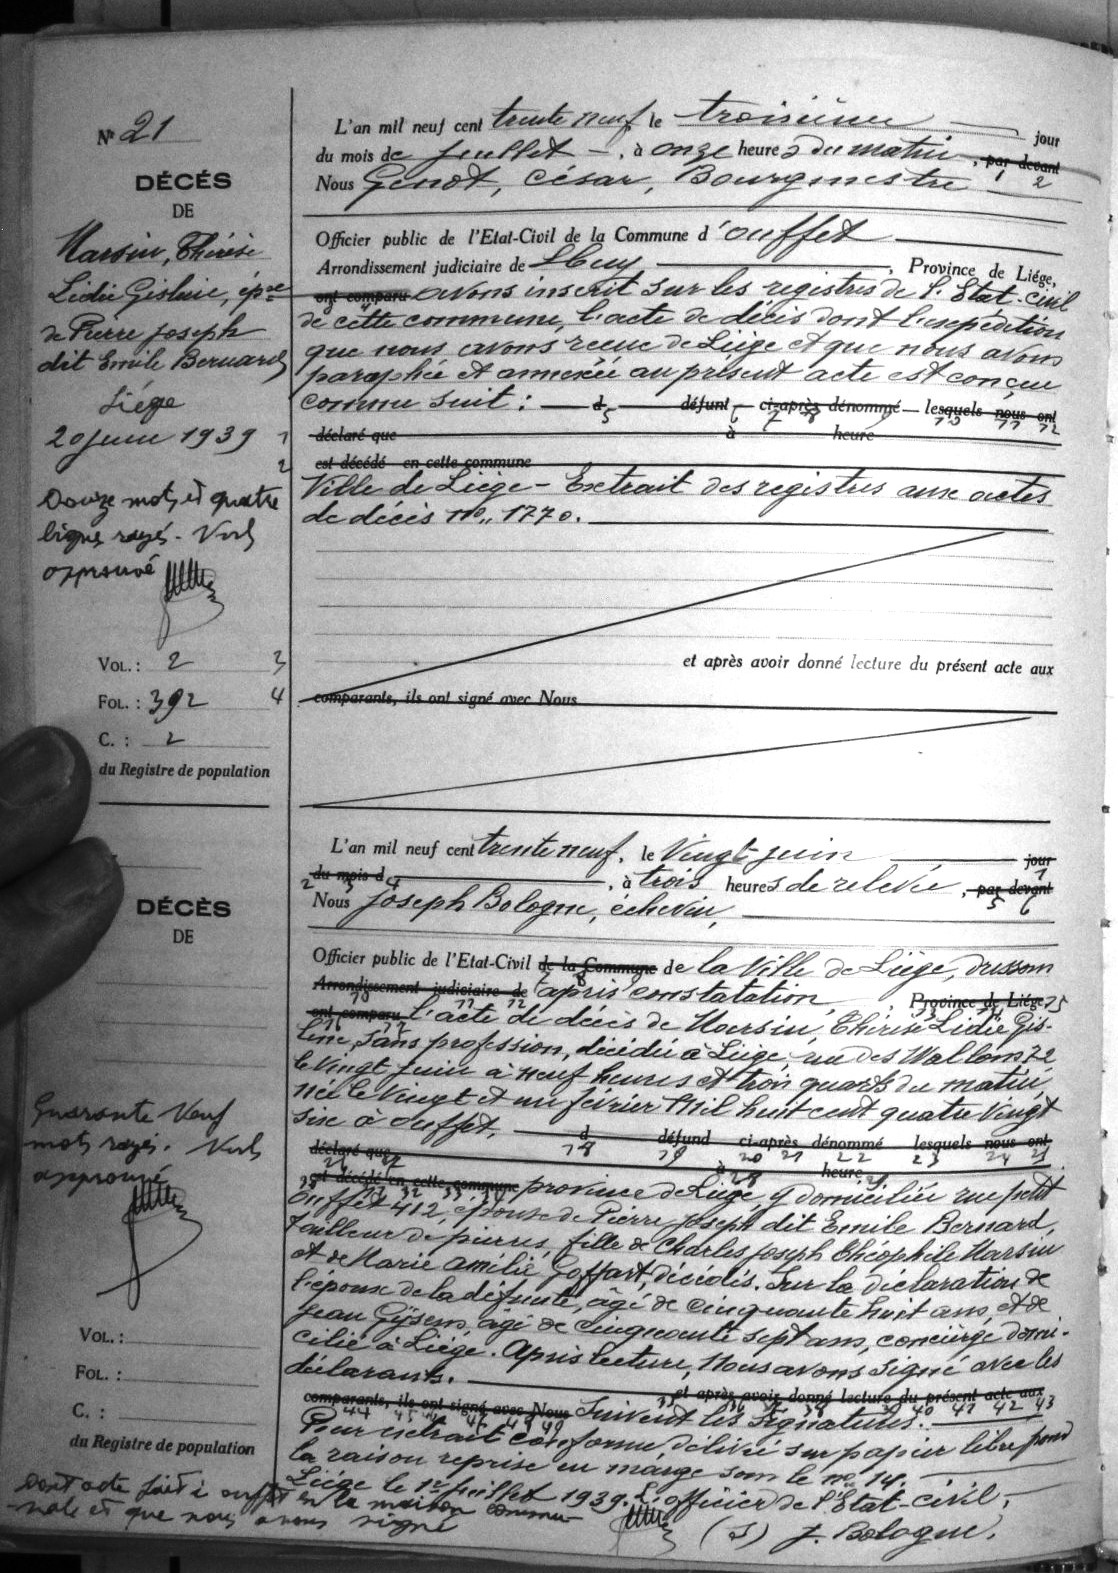 N° 21
DÉCÉS
DE
Marsin, Thérèse
Lidie Gisline, épse
de Pierre Joseph
dit Emile Bernard
Liége
20 juin 1939
Douze mots et quatre
lignes rayés. Nuls
approuvé
VOL. : 2
FOL. : 392
C. : 2
du Registre de population
L'an mil neuf cent trente neuf, le troisième jour
du mois de juillet, à onze heures du matin, par devant
Nous Genot, César, Bourgmestre
Officier public de l'Etat-Civil de la Commune d'Ouffet
Arrondissement judiciaire de Huy, Province de Liége,
ont comparu avons inscrit sur les registres de l'Etat-civil
de cette commune, l'acte de décès dont l'expédition
que nous avons reçue de Liége et que nous avons
paraphée et annexée au présent acte est conçue
comme suit : d défunt ci-après dénommé lesquels nous ont
déclaré que à heure
est décédé en cette commune
Ville de Liége - Extrait des registres aux actes
de décès no. 1770.
et après avoir donné lecture du présent acte aux
comparants, ils ont signé avec Nous
DÉCÈS
DE
Quarante neuf
mots rayés. Nuls
approuvé
VOL. :
FOL. :
C. :
du Registre de population
L'an mil neuf cent trente neuf, le vingt juin jour
du mois d, à trois heures de relevée, par devant
Nous Joseph Bologne, échevin,
Officier public de l'Etat-Civil de la Commune de la Ville de Liége, dressons
Arrondissement judiciaire de après constatation, Province de Liége,
ont comparu l'acte de décès de Marsin, Thérèse Lidie Gis-
line, sans profession, décédée à Liége, rue des Wallons 72
le vingt juin à neuf heures et trois quarts du matin,
née le vingt et un février mil huit cent quatre vingt
six à Ouffet, d défund ci-après dénommé lesquels nous ont
déclaré que à heure
est décédé en cette commune province de Liége, y domiciliée rue petit
Ouffet 412, épouse de Pierre Joseph dit Emile Bernard,
tailleur de pierres, fille de Charles Joseph Théophile Marsin
et de Marie Amélie Goffart, décédés. Sur la déclaration de
l'époux de la défunte, âgé de cinquante huit ans, et de
Jean Gijsens, âgé de cinquante sept ans, concierge domi-
cilié à Liége. Après lecture, Nous avons signé avec les
déclarants.
et après avoir donné lecture du présent acte aux
comparants, ils ont signé avec Nous Suivent les signatures.
Pour extrait conforme, délivré sur papier libre pour
la raison reprise en marge sous le no. 14.
Liége le 1er juillet 1939. L'officier de l'Etat-civil,
(s) J. Bologne.
Dont acte fait à Ouffet en la maison commu-
nale et que nous avons signé